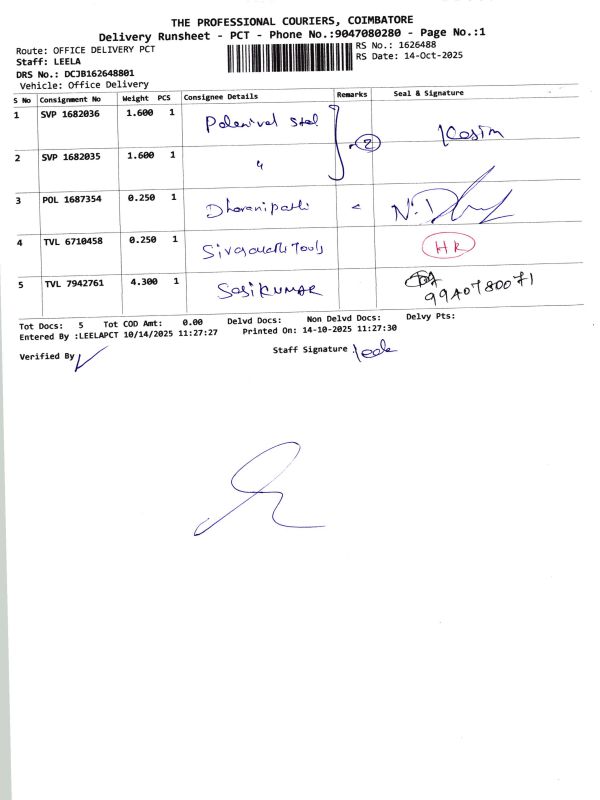 THE PROFESSIONAL COURIERS, COIMBATORE
Delivery Runsheet - PCT - Phone No.:9047080280 - Page No.:1
Route: OFFICE DELIVERY PCT
RS No.: 1626488
Staff: LEELA
RS Date: 14-Oct-2025
DRS No.: DCJB162648801
Vehicle: Office Delivery
S No Consignment No Weight PCS Consignee Details Remarks Seal & Signature
1 SVP 1682036 1.600 1
2
2 SVP 1682035 1.600 1 "
3 POL 1687354 0.250 1
4 TVL 6710458 0.250 1 Tools HR
5 TVL 7942761 4.300 1 SasiKUMAR
Tot Docs: 5 Tot COD Amt: 0.00 Delvd Docs: Non Delvd Docs: Delvy Pts:
Entered By :LEELAPCT 10/14/2025 11:27:27 Printed On: 14-10-2025 11:27:30
Verified By
Staff Signature :